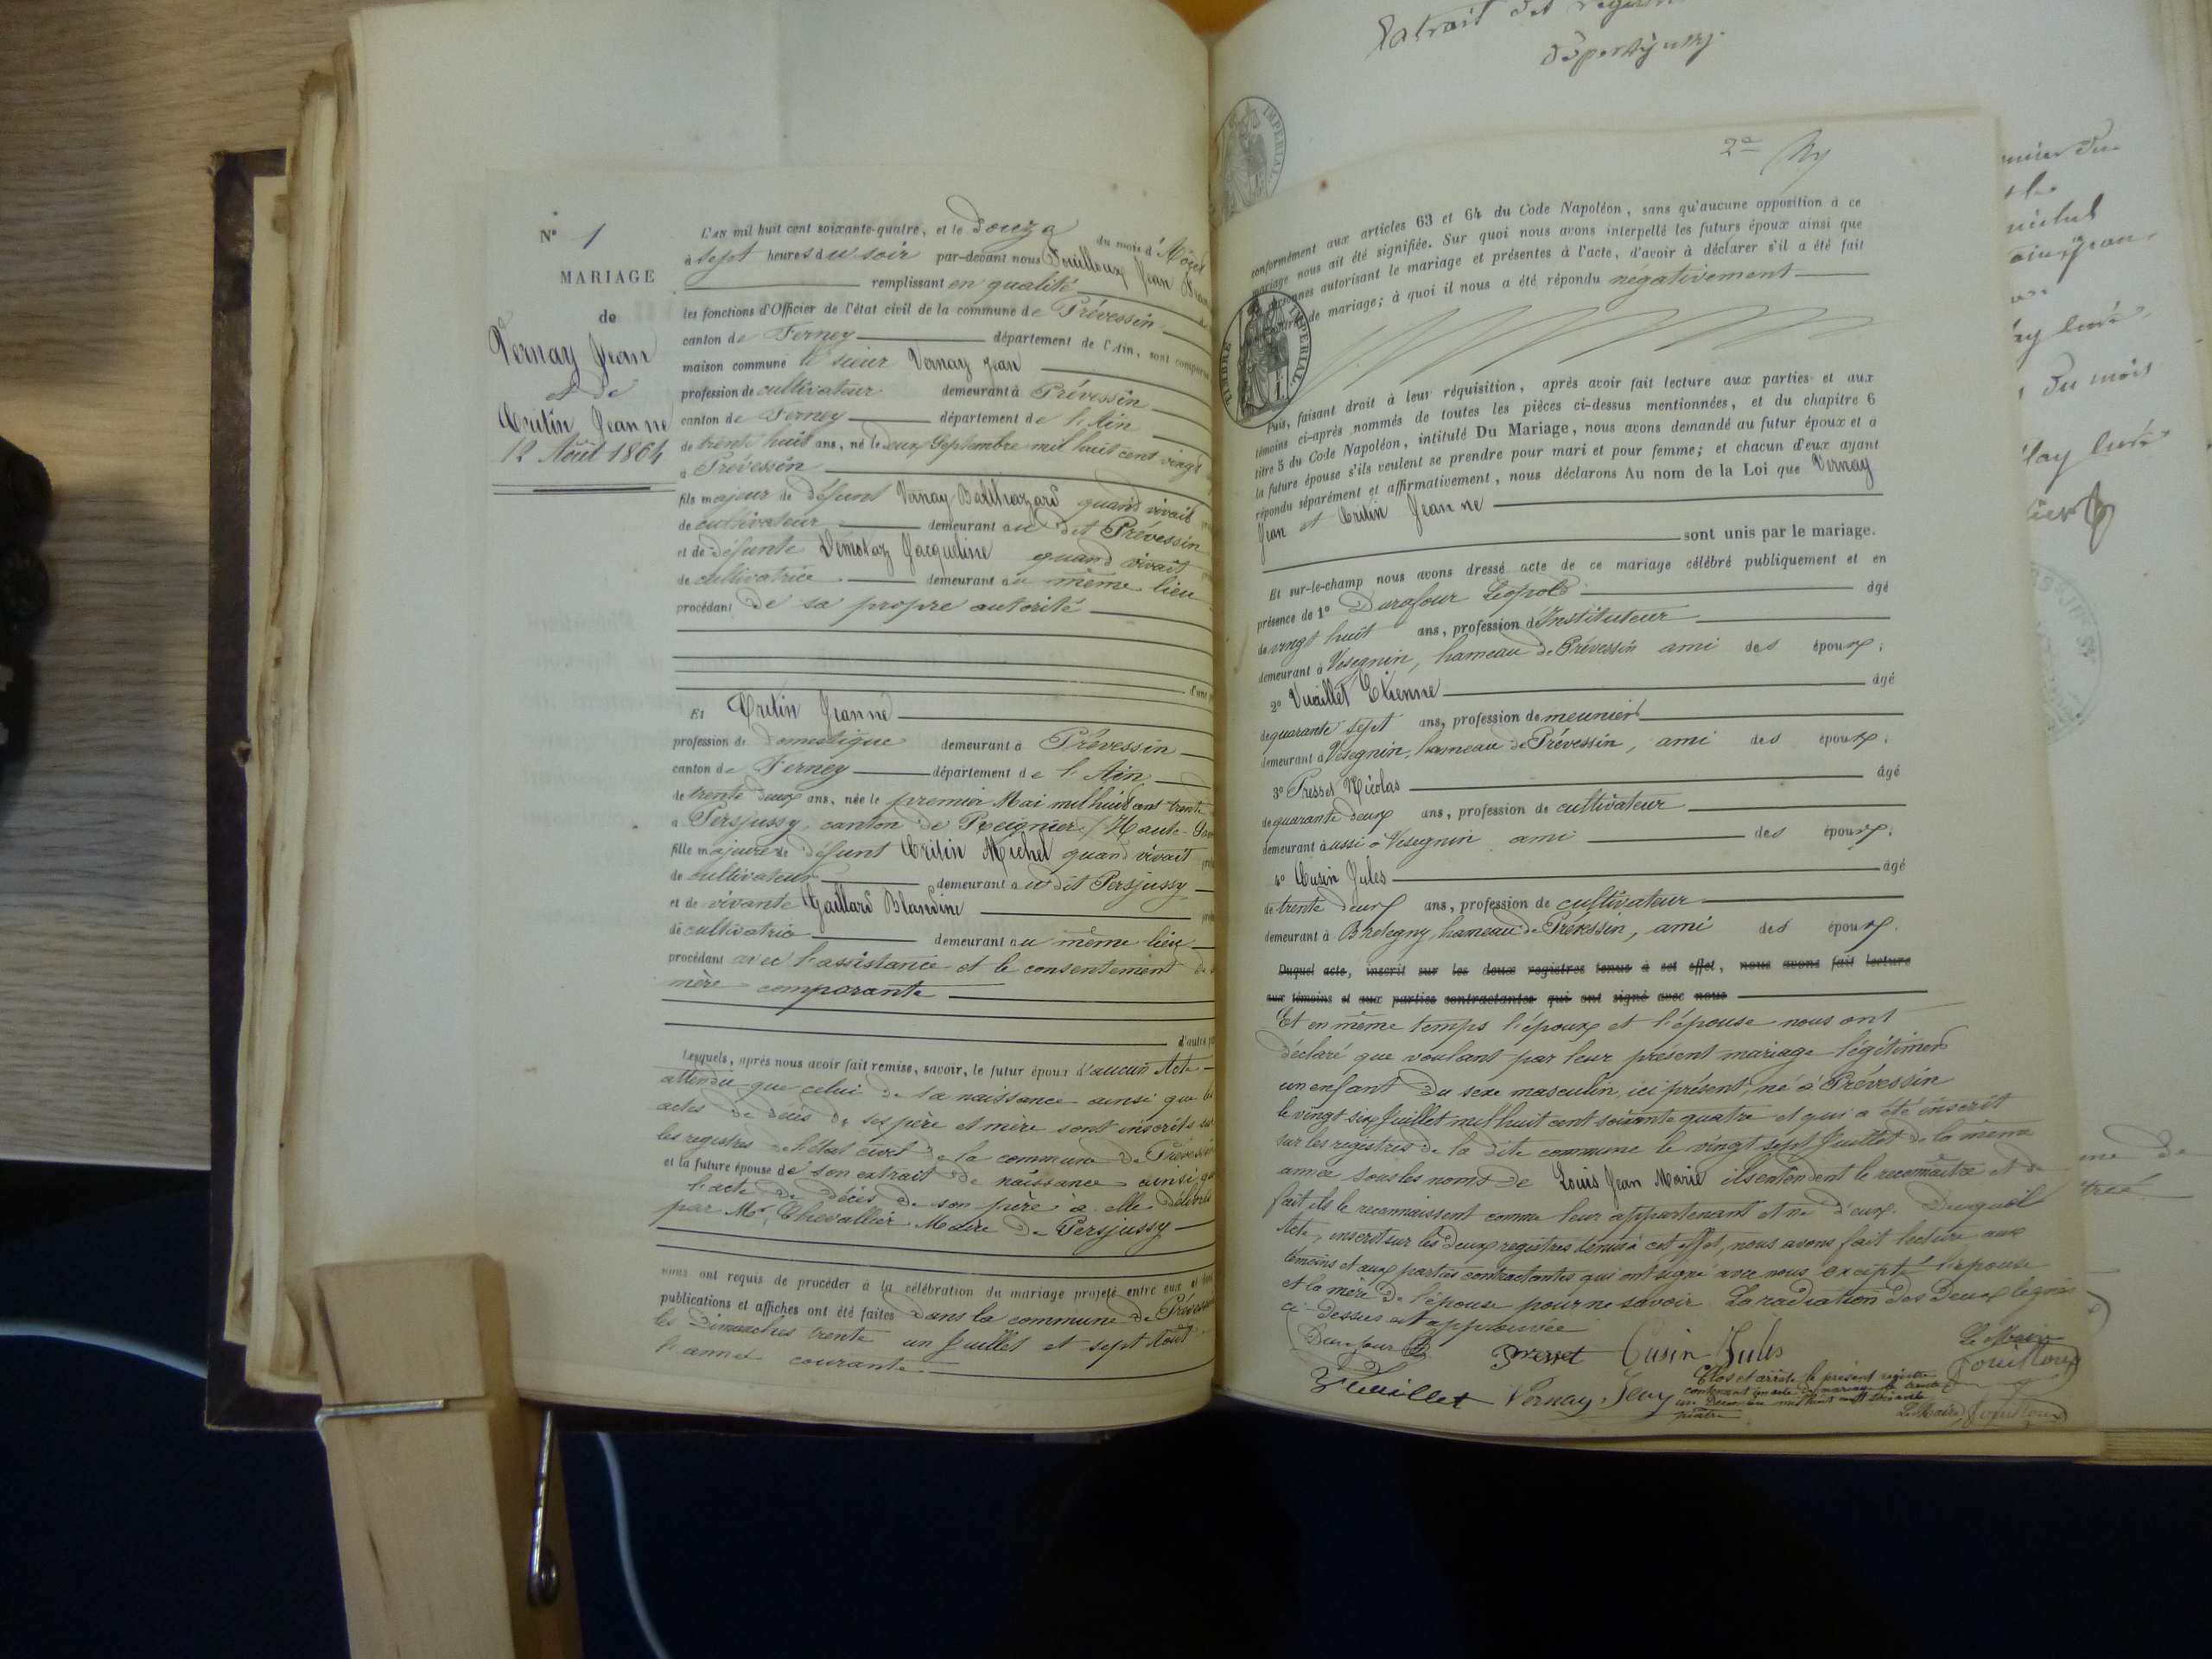 N° 1
MARIAGE
de
Vernay Jean
et de
Critin Jeanne
12 Août 1864
L'AN mil huit cent soixante-quatre, et le douze du mois d'Août
à sept heures du soir par-devant nous Fouilloux Jean
remplissant en qualité
les fonctions d'Officier de l'état civil de la commune de Prévessin
canton de Ferney département de l'Ain, sont comparu
maison commune le sieur Vernay Jean
profession de cultivateur demeurant à Prévessin
canton de Ferney département de l'Ain
de trente huit ans, né le deux Septembre mil huit cent vingt
à Prévessin
fils majeur de défunt Vernay Balthazard quand vivait
de cultivateur demeurant au dit Prévessin
et de défunte Démolaz Jacqueline quand vivait
de cultivatrice demeurant au même lieu
procédant de sa propre autorité
d'une
Et Critin Jeanne
profession de domestique demeurant à Prévessin
canton de Ferney département de l'Ain
de trente deux ans, née le premier Mai mil huit cent trente
à Persjussy, canton de Reignier (Haute-
fille majeure de défunt Critin Michel quand vivait
de cultivateur demeurant au dit Persjussy
et de vivante Gaillard Blandine
de cultivatrice demeurant au même lieu
procédant avec l'assistance et le consentement de
mère comparante
d'autre
Lesquels, après nous avoir fait remise, savoir, le futur époux d'aucun Acte
attendu que celui de sa naissance ainsi que les
actes de décès de ses père et mère sont inscrits sur
les registres de l'état civil de la commune de Prévessin
et la future épouse de son extrait de naissance ainsi que
l'acte de décès de son père à elle délivrés
par Mr. Chevallier Maire de Persjussy
nous ont requis de procéder à la célébration du mariage projeté entre eux et dont
publications et affiches ont été faites dans la commune de Prévessin
les Dimanches trente un Juillet et sept Août
l'année courante
Extrait des
2e
conformément aux articles 63 et 64 du Code Napoléon, sans qu'aucune opposition à ce
mariage nous ait été signifiée. Sur quoi nous avons interpellé les futurs époux ainsi que
personnes autorisant le mariage et présentes à l'acte, d'avoir à déclarer s'il a été fait
de mariage; à quoi il nous a été répondu négativement
TIMBRE IMPÉRIAL
Puis, faisant droit à leur réquisition, après avoir fait lecture aux parties et aux
témoins ci-après nommés de toutes les pièces ci-dessus mentionnées, et du chapitre 6
titre 5 du Code Napoléon, intitulé Du Mariage, nous avons demandé au futur époux et à
la future épouse s'ils veulent se prendre pour mari et pour femme; et chacun d'eux ayant
répondu séparément et affirmativement, nous déclarons Au nom de la Loi que Vernay
Jean et Critin Jeanne
sont unis par le mariage.
Et sur-le-champ nous avons dressé acte de ce mariage célébré publiquement et en
présence de 1° Durafour Léopold âgé
de vingt huit ans, profession d'Instituteur
demeurant à Vésegnin, hameau de Prévessin ami des époux;
2° Vuaillet Etienne âgé
de quarante sept ans, profession de meunier
demeurant à Vésegnin, hameau de Prévessin, ami des époux;
3° Presset Nicolas âgé
de quarante deux ans, profession de cultivateur
demeurant aussi à Vésegnin ami des époux;
4° Cusin Jules âgé
de trente deux ans, profession de cultivateur
demeurant à Brétegny, hameau de Prévessin, ami des époux.
Duquel acte, inscrit sur les deux registres tenus à cet effet, nous avons fait lecture
aux témoins et aux parties contractantes qui ont signé avec nous
Et en même temps l'époux et l'épouse nous ont
déclaré que voulant par leur présent mariage légitimer
un enfant du sexe masculin, ici présent, né à Prévessin
le vingt six Juillet mil huit cent soixante quatre et qui a été inscrit
sur les registres de la dite commune le vingt sept Juillet de la même
année sous les noms de Louis Jean Marie ils entendent le reconnaître et de
fait ils le reconnaissent comme leur appartenant et né d'eux. Duquel
Acte, inscrit sur les deux registres tenus à cet effet, nous avons fait lecture aux
témoins et aux parties contractantes qui ont signé avec nous excepté l'épouse
et la mère de l'épouse pour ne savoir. La radiation des deux lignes
ci-dessus est approuvée
Durafour Presset Cusin Jules Le Maire
Fouilloux
Vuaillet Vernay Jean
Clos et arrêté le présent registre
contenant un acte de mariage le trente
un Décembre mil huit cent soixante
quatre
Le Maire Fouilloux